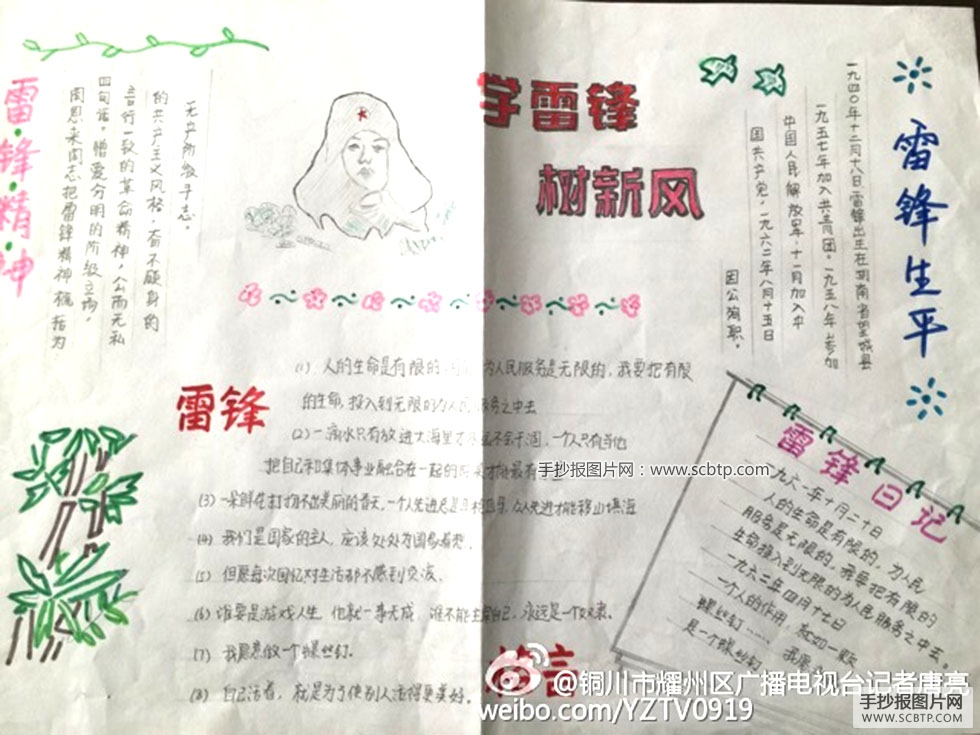 学雷锋
树新风
雷锋生平
一九四〇年十二月十八日雷锋出生在湖南省望城县
一九五七年加入共青团。一九五八年参加
中国人民解放军。十一月加入中
国共产党,一九六二年八月十五日
因公殉职。
雷·锋·精·神
周恩来同志把雷锋精神概括为
四句话。憎爱分明的阶级立场,
言行一致的革命精神,公而无私
的共产主义风格,奋不顾身的
无产阶级斗志。
雷锋
(1) 人的生命是有限的 为人民服务是无限的,我要把有限
的生命,投入到无限的为人民服务之中去
(2) 一滴水只有放进大海里才 不会干涸,一个人只有当他
把自己和集体事业融合在一起的时候才能最有
(3) 一朵鲜花打扮不出美丽的春天,一个人先进总是 众人先进才能移山填海
(4) 我们是国家的主人,应该处处为国家着想.
(5) 但愿每次回忆对生活都不感到负疚.
(6) 谁要是游戏人生,他就一事无成,谁不能主宰自己,永远是一个奴隶。
(7) 我愿意做一个螺丝钉.
(8) 自己活着,就是为了使别人活得更美好。
格言
雷锋日记
一九六一年十月二十日
人的生命是有限的,为人民
服务是无限的,我要把有限的
生命投入到无限的为人民服务之中去。
一九六二年四月十七日
一个人的作用,就如一颗
螺丝钉……我愿
是一个螺丝钉
手抄报图片网:www.scbtp.com
@铜川市耀州区广播电视台记者唐亮
weibo.com/YZTV0919
手抄报图片网
WWW.SCBTP.COM